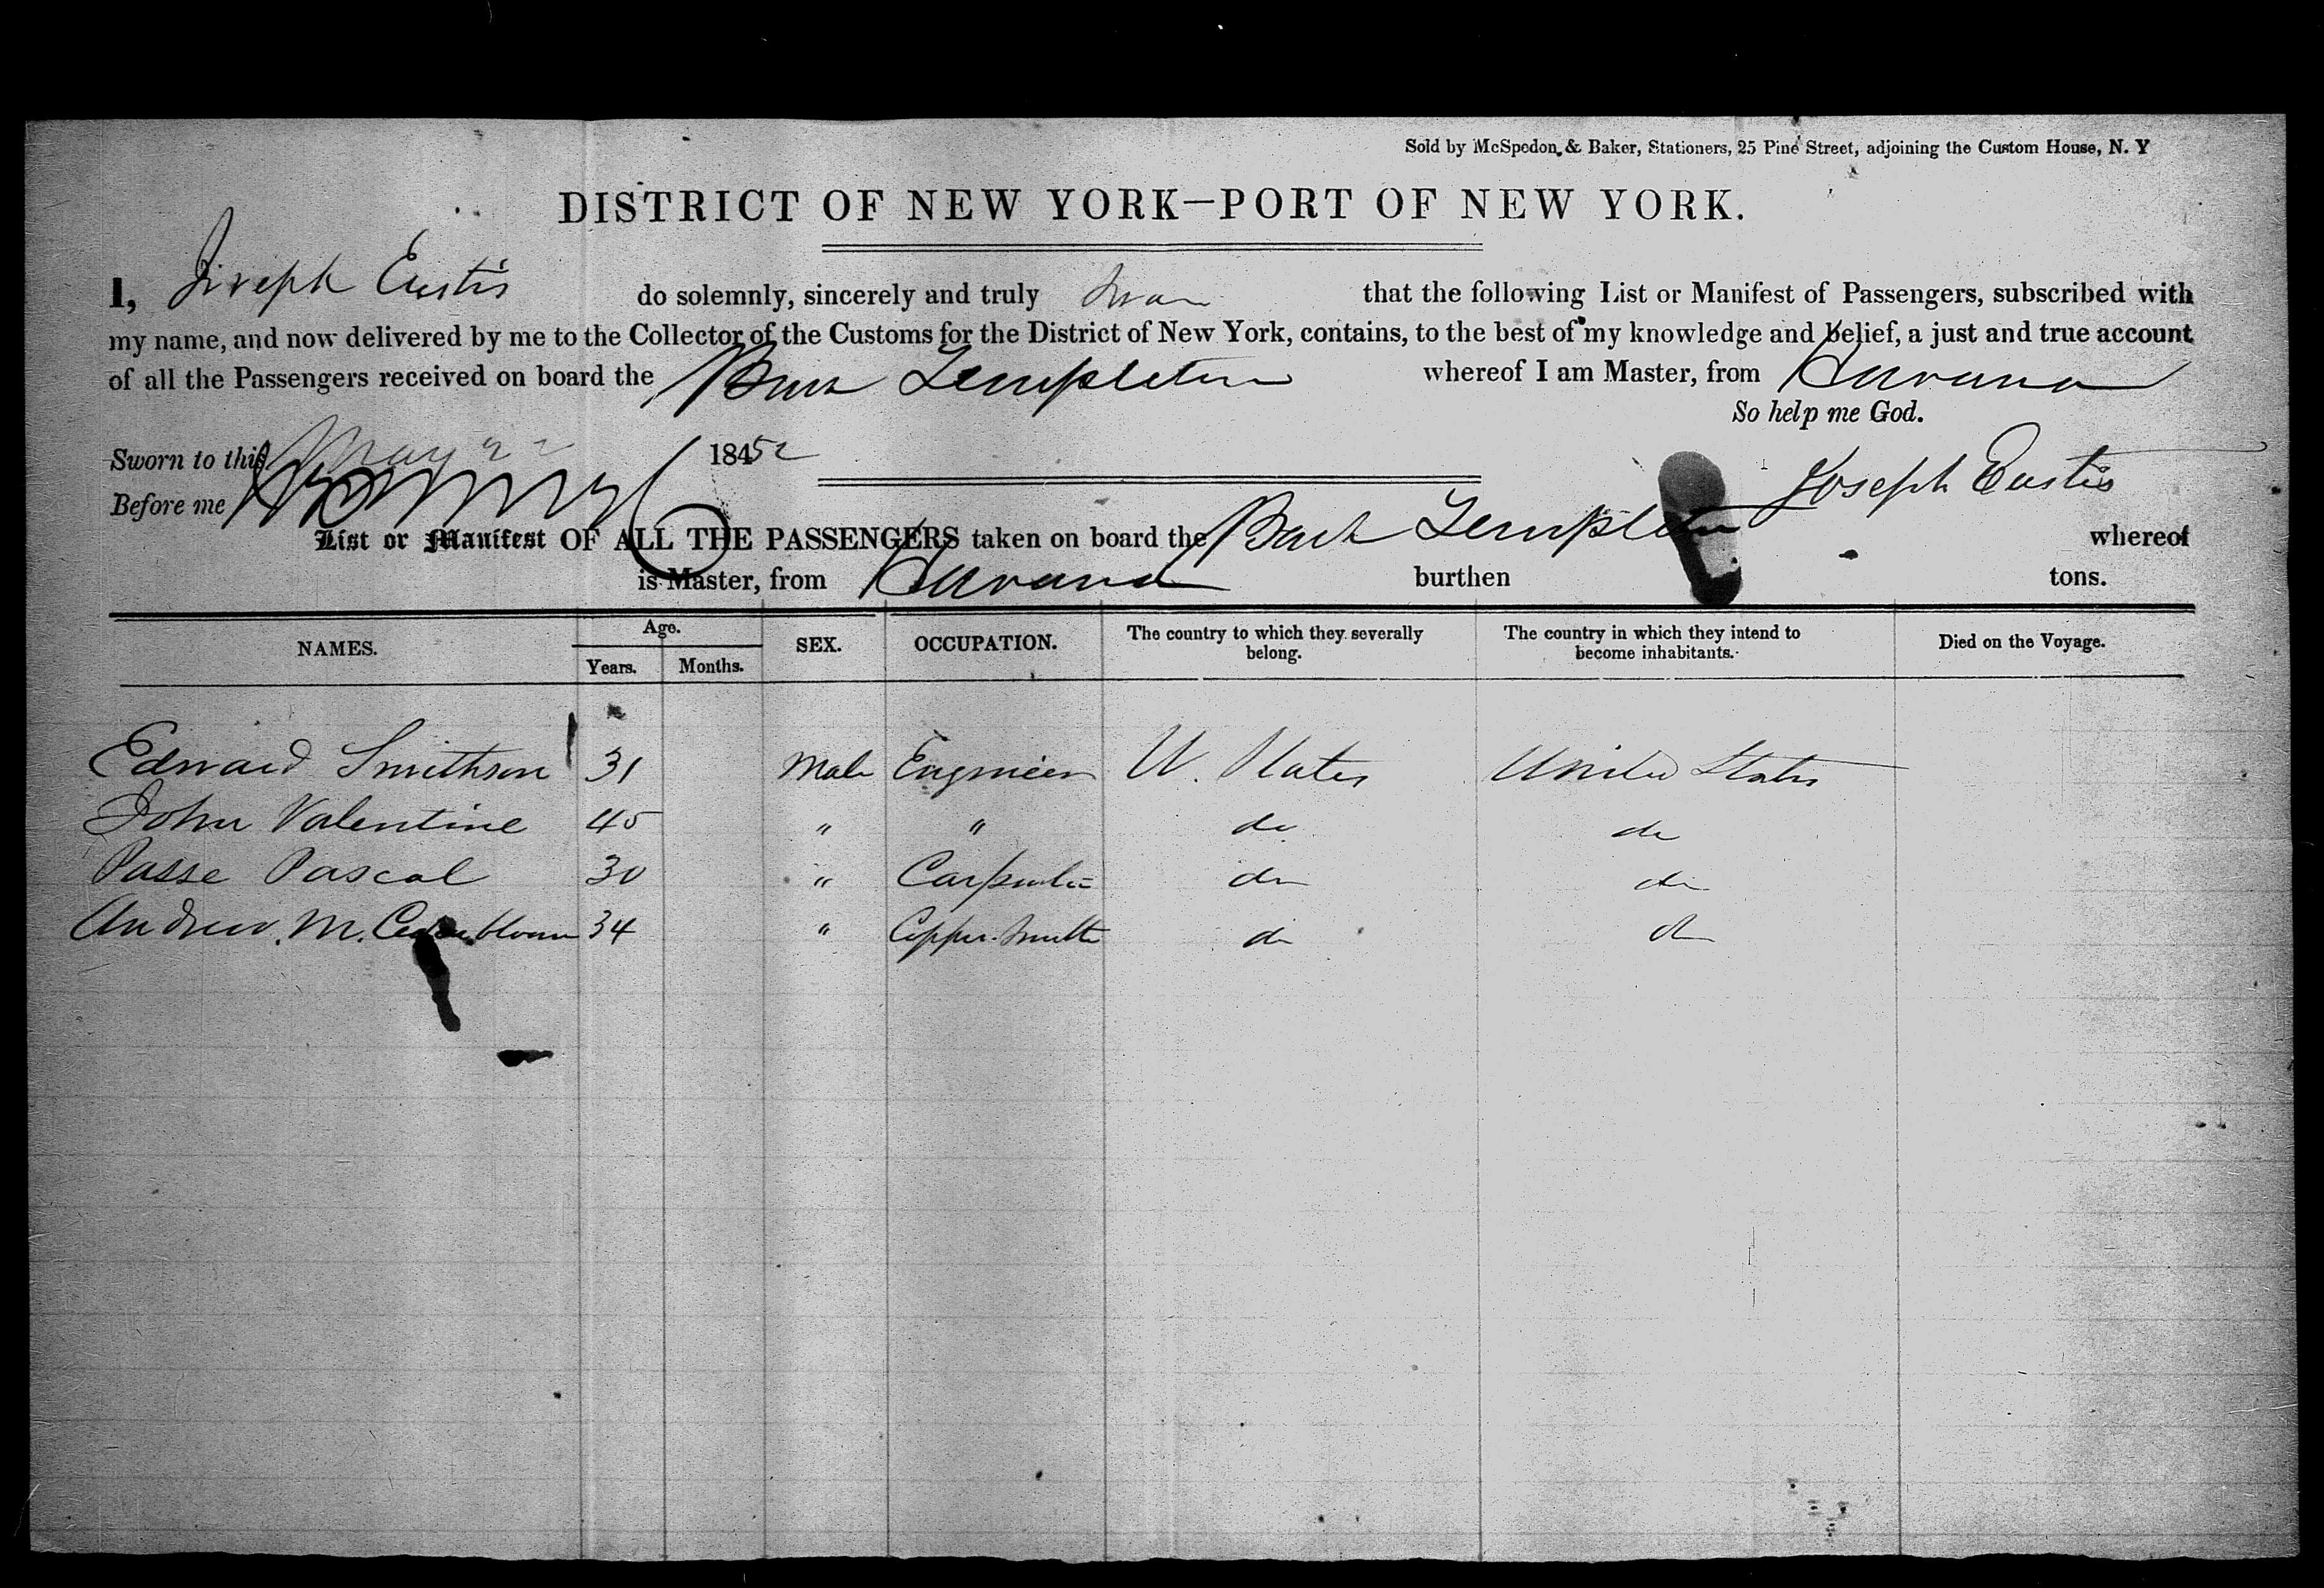 Sold by McSpedon & Baker, Stationers, 25 Pine Street, adjoining the Custom House, N. Y
DISTRICT OF NEW YORK—PORT OF NEW YORK.
I, Joseph Eustis do solemnly, sincerely and truly Swear that the following List or Manifest of Passengers, subscribed with
my name, and now delivered by me to the Collector of the Customs for the District of New York, contains, to the best of my knowledge and belief, a just and true account
of all the Passengers received on board the Bark Templeton whereof I am Master, from Havana
So help me God.
Sworn to this May 22 1852
Joseph Eustis
Before me
List or Manifest OF ALL THE PASSENGERS taken on board the Bark Templeton whereof
is Master, from Havana burthen tons.
NAMES. Age. Years. Months. SEX. OCCUPATION. The country to which they severally belong. The country in which they intend to become inhabitants. Died on the Voyage.
Edward Smithson 31 Male Engineer U. States United States
John Valentine 45 " " do do
Passe Pascal 30 " Carpenter do do
Andrew. M. 34 " Copper Smith do do